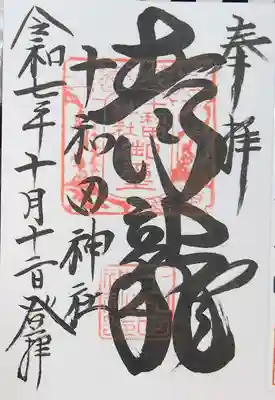 奉拝
青龍
十和田神社
令和七年十月十二日登拝